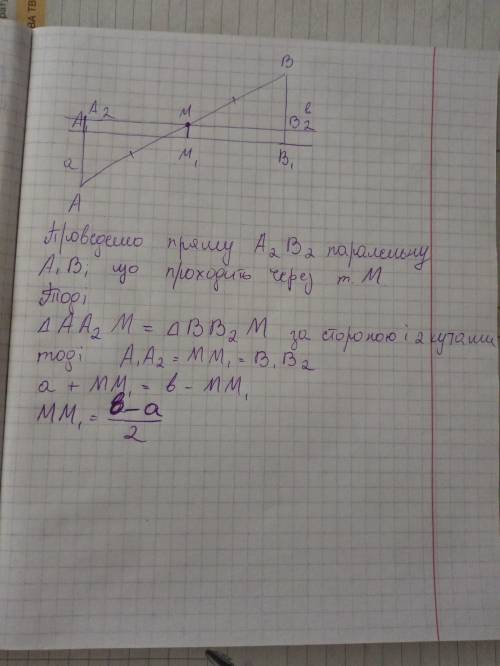 B
A₂ M в
A₁ B₂
M₁ B₁
a
A
Проведемо пряму A₂B₂ паралельну
A₁B₁ що проходить через т. M
Тоді
△AA₂M = △BB₂M за стороною і 2 кутами
тоді A₁A₂ = MM₁ = B₁B₂
a + MM₁ = в – MM₁
MM₁ = в–a
2